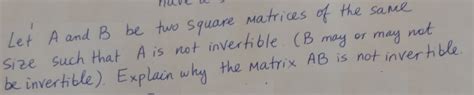 Let A and B be two square matrices of the same
size such that A is not invertible. (B may or may not
be invertible). Explain why the matrix AB is not invertible.